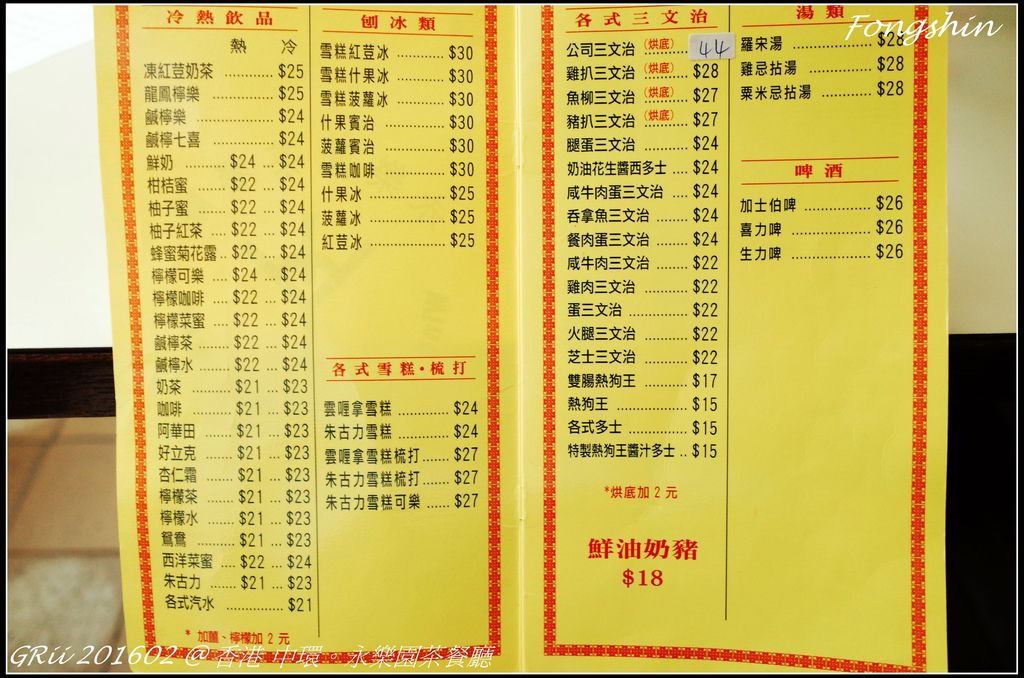 冷熱飲品
熱 冷
凍紅荳奶茶 ............ $25
龍鳳檸樂 ............ $25
鹹檸樂 ............ $24
鹹檸七喜 ............ $24
鮮奶 ......... $24 ... $24
柑桔蜜 ....... $22 ... $24
柚子蜜 ....... $22 ... $24
柚子紅茶 .... $22 ... $24
蜂蜜菊花露 .. $22 ... $24
檸檬可樂 .... $24 ... $24
檸檬咖啡 .... $22 ... $24
檸檬菜蜜 .... $22 ... $24
鹹檸茶 ....... $22 ... $24
鹹檸水 ....... $22 ... $24
奶茶 ......... $21 ... $23
咖啡 ......... $21 ... $23
阿華田 ....... $21 ... $23
好立克 ....... $21 ... $23
杏仁霜 ....... $21 ... $23
檸檬茶 ....... $21 ... $23
檸檬水 ....... $21 ... $23
鴛鴦 ......... $21 ... $23
西洋菜蜜 .... $22 ... $24
朱古力 ....... $21 ... $23
各式汽水 ................ $21
* 加薑、檸檬加 2 元
刨冰類
雪糕紅荳冰 .......... $30
雪糕什果冰 .......... $30
雪糕菠蘿冰 .......... $30
什果賓治 ............ $30
菠蘿賓治 ............ $30
雪糕咖啡 ............ $30
什果冰 .............. $25
菠蘿冰 .............. $25
紅荳冰 .............. $25
各式雪糕·梳打
雲喱拿雪糕 ............ $24
朱古力雪糕 ............ $24
雲喱拿雪糕梳打 ....... $27
朱古力雪糕梳打 ....... $27
朱古力雪糕可樂 ...... $27
各式三文治
公司三文治 (烘底) ..... 44
雞扒三文治 (烘底) ..... $28
魚柳三文治 (烘底) ..... $27
豬扒三文治 (烘底) ..... $27
腿蛋三文治 .......... $24
奶油花生醬西多士 .... $24
咸牛肉蛋三文治 ...... $24
吞拿魚三文治 ........ $24
餐肉蛋三文治 ........ $24
咸牛肉三文治 ........ $22
雞肉三文治 .......... $22
蛋三文治 ............ $22
火腿三文治 .......... $22
芝士三文治 .......... $22
雙腸熱狗王 .......... $17
熱狗王 .............. $15
各式多士 ............ $15
特製熱狗王醬汁多士 .. $15
*烘底加 2 元
鮮油奶豬
$18
湯類
羅宋湯 ................. $28
雞忌拈湯 ............... $28
粟米忌拈湯 ............. $28
啤酒
加士伯啤 ............... $26
喜力啤 ................. $26
生力啤 ................. $26
Fongshin
GRii 201602 @ 香港 中環。永樂園茶餐廳